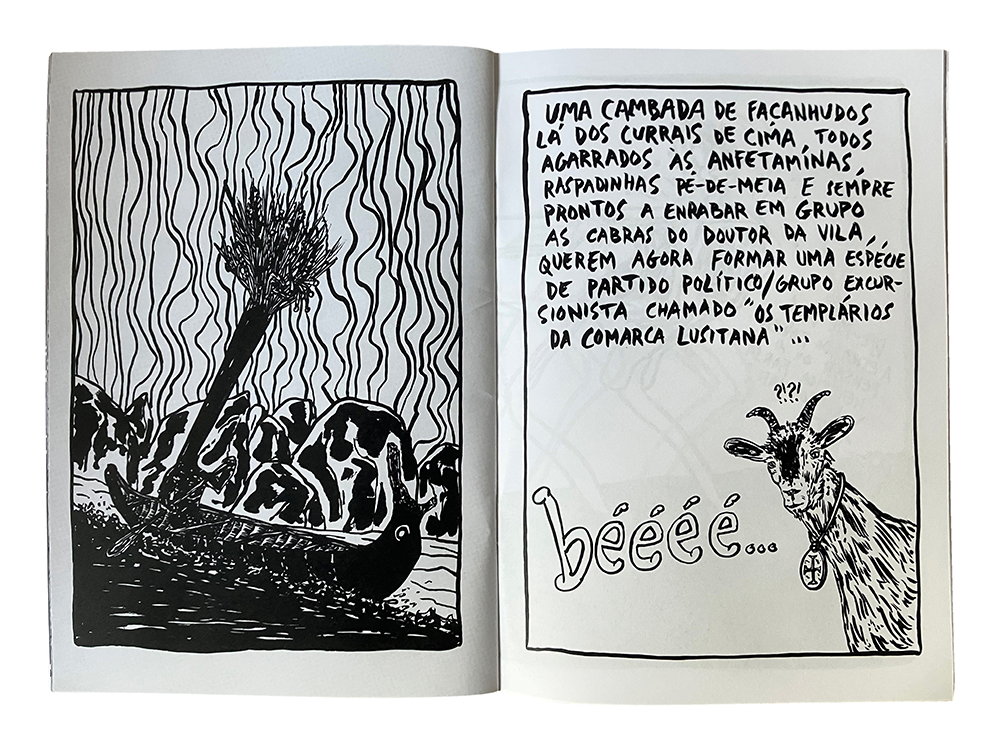 UMA CAMBADA DE FAÇANHUDOS
LÁ DOS CURRAIS DE CIMA, TODOS
AGARRADOS ÀS ANFETAMINAS,
RASPADINHAS PÉ-DE-MEIA E SEMPRE
PRONTOS A ENRABAR EM GRUPO
AS CABRAS DO DOUTOR DA VILA,
QUEREM AGORA FORMAR UMA ESPÉCIE
DE PARTIDO POLÍTICO/GRUPO EXCUR-
SIONISTA CHAMADO "OS TEMPLÁRIOS
DA COMARCA LUSITANA"...
?!?!
béééé...